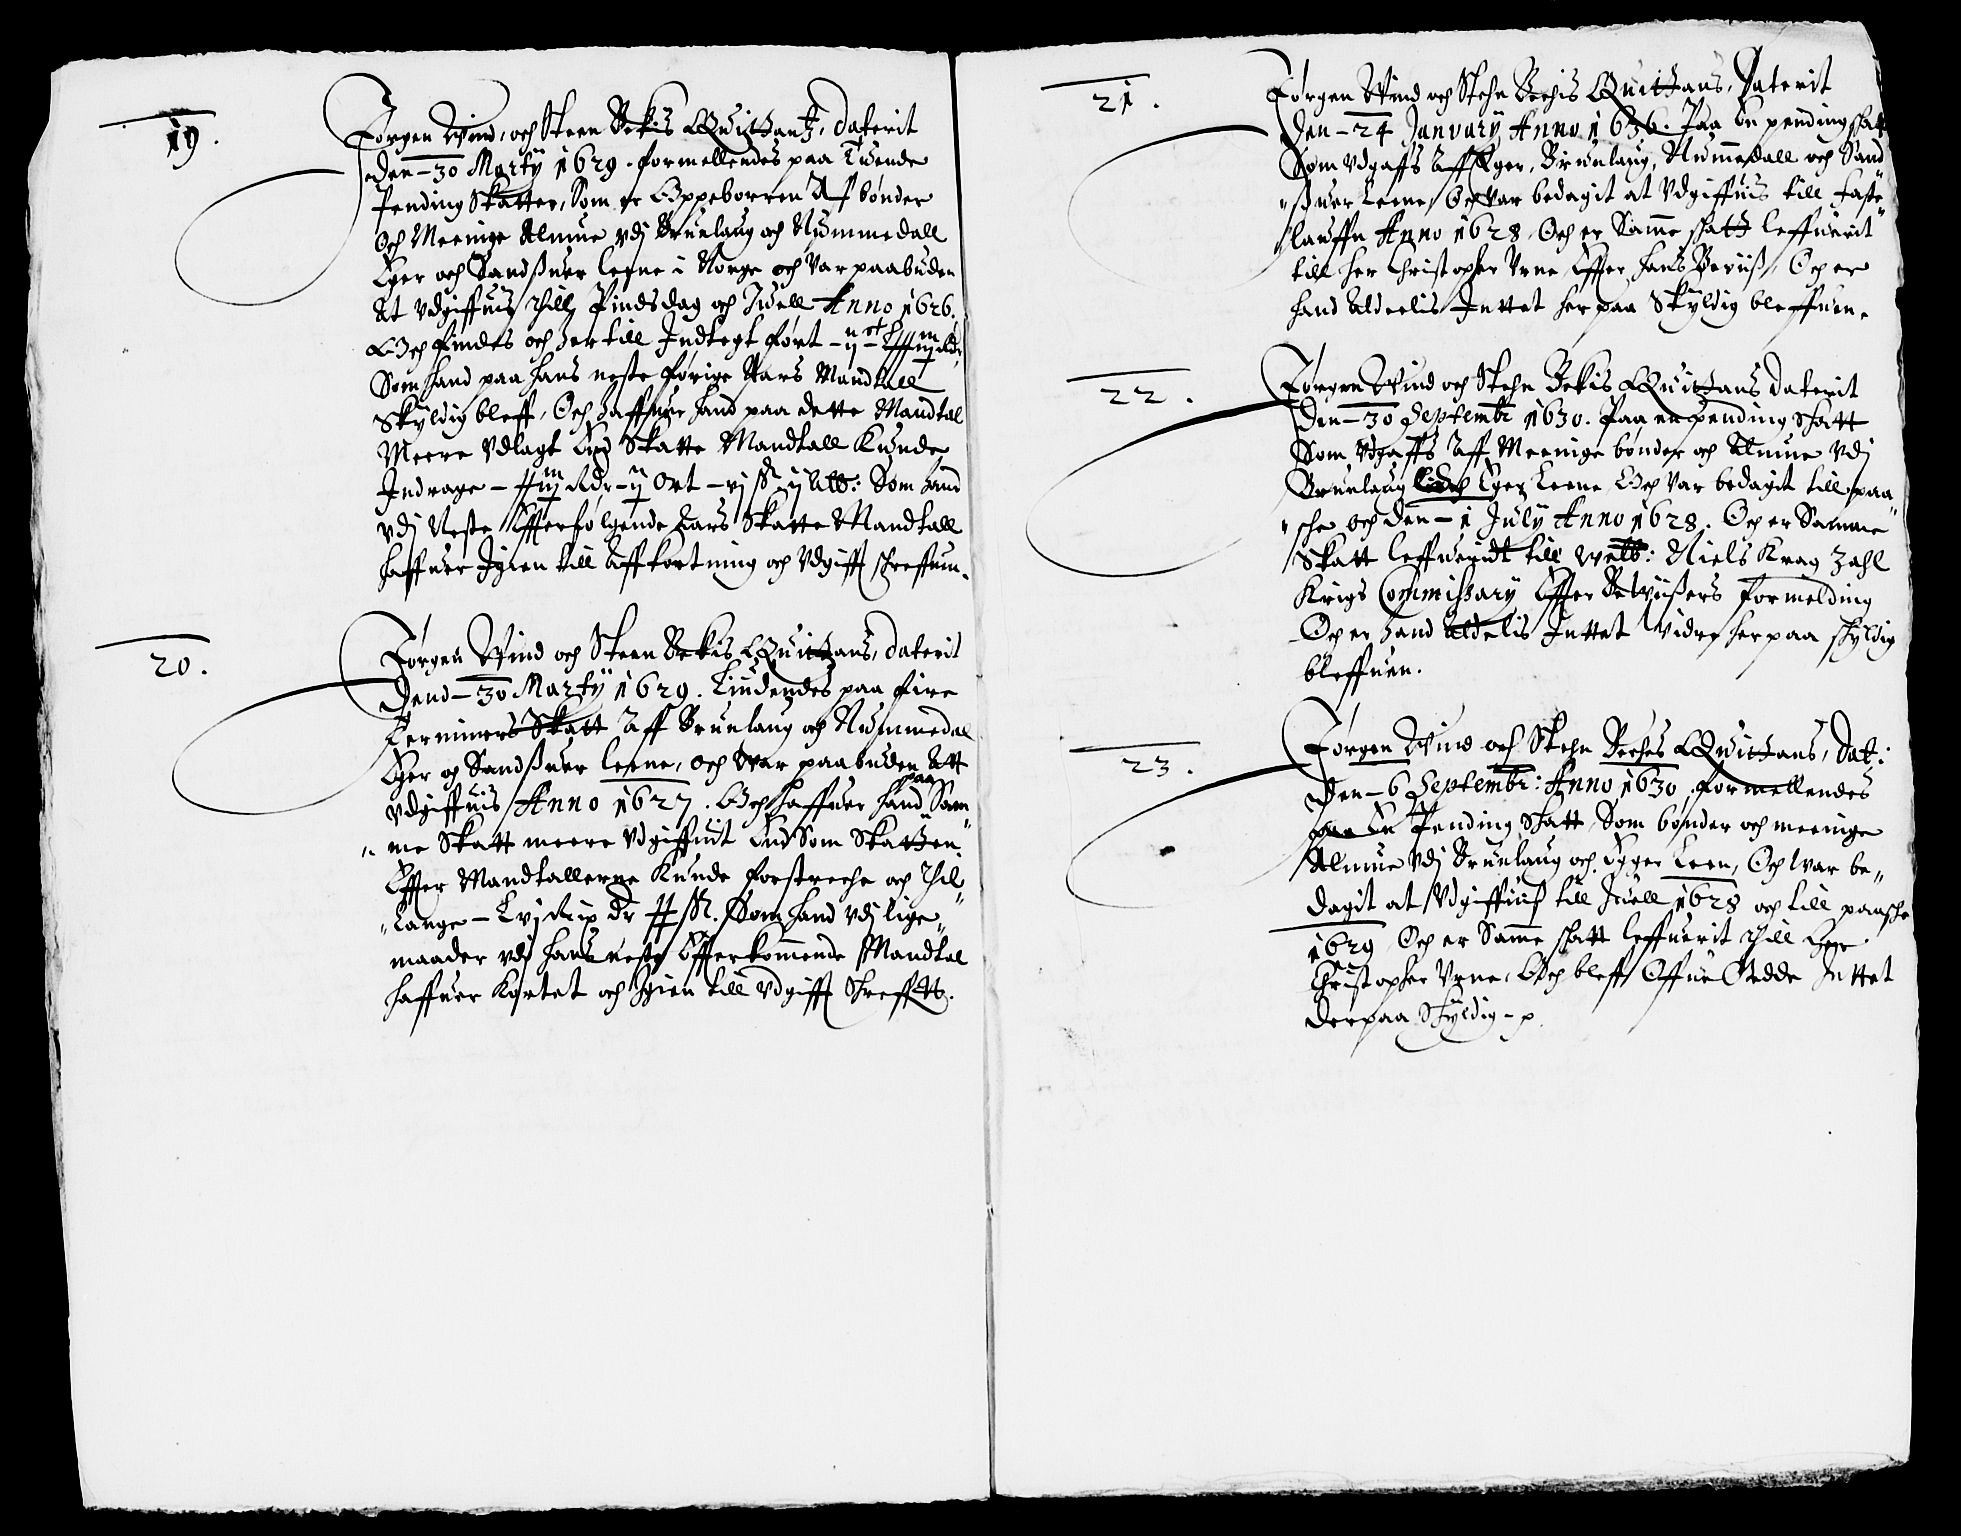 19.
Jørgen Wind, och Steen Bekis Quittantz, daterit
den 30 Martij 1629. formellendes paa Tuende
Pending Skatter, Som er Oppeborren Af bønder
Och Meenige Almue vdj Brunlaug och Nummedall
Eger och Sandßuer leene i Norge och Var paabuden
At vdgiffuis thill Pindsdag och Juell Anno 1626.
Och findes och her till Indtegt ført
Som hand paa hans neste forige Aars Mandtall
Skyldig bleff, Och haffuer hand paa dette Mandtal
Meere Vdlagt End Skatte Mandtall Kunde
Indrage – Rdr – ij Ort – vj ß ij Alb: Som hand
vdj Neste Efferfølgende Aars Skatte Mandtall
haffuer Igien till Affkortning och Vdgifft schreffuin.
20.
Jørgen Wind och Steen Bekis Quittans, daterit
Dend – 30 Martij 1629. Liudendes paa fire
Terminers Skatt Aff Brunlaug och Nummedal
Eger og Sandßuer leene, och War paabuden Att
vdgiffuis Anno 1627. Och haffuer hand paa Sam„
„me Skatt meere Vdgiffuit End Som Skatten
Effter Mandtallerne Kunde forstreche och Thil„
„lange – Lvj Rix dr ß. Som hand vdj lige„
maader vdj hans neste Effterkommende Mandtal
haffuer Kortet och Igien till Vdgifft Schreffit.
21.
Jørgen Wind och Stehn Bechis Quittans, Daterit
Den – 24 January Anno 1636. Paa En pending shatt
Som Vdgaffs Aff Eger, Brunlaug, Nummedall och Sand„
„ßuer Leene, Och Var bedagit at Vdgiffuis till Faste„
„lauffn Anno 1628, Och er Samme shatt leffuerit
till Her Christopher Vrne Effter hans Beviis, Och er
hand Aldeelis Inttet her paa Skyldig bleffuen.
22.
Jørgen Wind och Stehn Bekis Quittans daterit
Den – 30 Septembr 1630. Paa en pending Shatt
Som Vdgaffs Aff Meenige bønder och Almue Vdj
Brunlaug och Eger Leene Och Var bedagit till paa„
„sche och den – 1 July Anno 1628. Och er Samme
Skatt leffueridt till Welb: Niels Krag Zahl
Krigs Commissary Effter Beviißers formelding
Och er hand Aldelis Inttet Vidre her paa skyldig
bleffuen.
23.
Jørgen Wind och Stehn Beches Quittans, Dat:
Den – 6 Septembr: Anno 1630, formellendes
paa En Pending Shatt, Som bønder och meenige
Almue Vdj Brunlaug och Egger Leen, Och War be„
dagit at Vdgiffuis till Juell 1628 och till paasche
1629 Och er Samme shatt leffuerit Thill Her
Christopher Vrne, Och bleff Offue Gedde Inttet
Derpaa Skyldig – p.